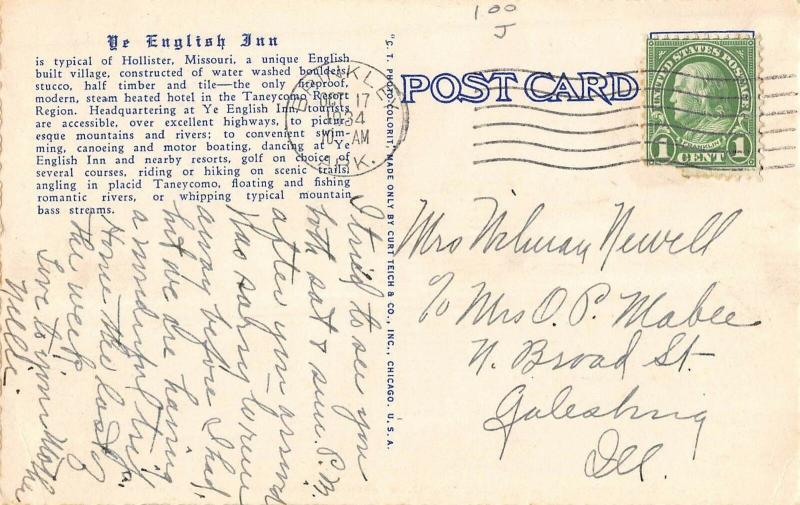 100
J
Ye English Inn
is typical of Hollister, Missouri, a unique English
built village, constructed of water washed boulders,
stucco, half timber and tile—the only fireproof,
modern, steam heated hotel in the Taneycomo Resort
Region. Headquartering at Ye English Inn tourists
are accessible, over excellent highways, to pictur-
esque mountains and rivers; to convenient swim-
ming, canoeing and motor boating, dancing at Ye
English Inn and nearby resorts, golf on choice of
several courses, riding or hiking on scenic trails,
angling in placid Taneycomo, floating and fishing
romantic rivers, or whipping typical mountain
bass streams.
BRINKLEY
OCT 17
1934
10 AM
ARK.
POST CARD
UNITED STATES POSTAGE
FRANKLIN
1 CENT 1
"C. T. PHOTO-COLORIT", MADE ONLY BY CURT TEICH & CO., INC., CHICAGO, U. S. A.
I tried to see you
both sat & sun. P.M.
after you
Was sorry to run
away before I had,
but we are having
a wonderful trip.
Home the last of
the week
Love to your Mother
Nelle.
Mrs Newell
c/o Mrs O. P. Mabee
N. Broad St.
Galesburg
Ill.